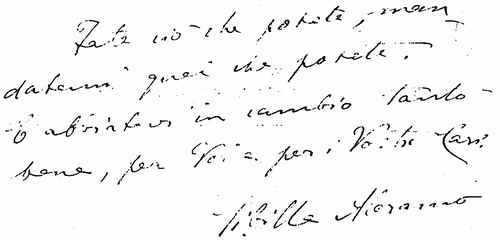 Fate ciò che potete, man_
datemi quel che potete.
E abbiatevi in cambio tanto
bene, per Voi e per i Vostri Cari.
Sibilla Aleramo